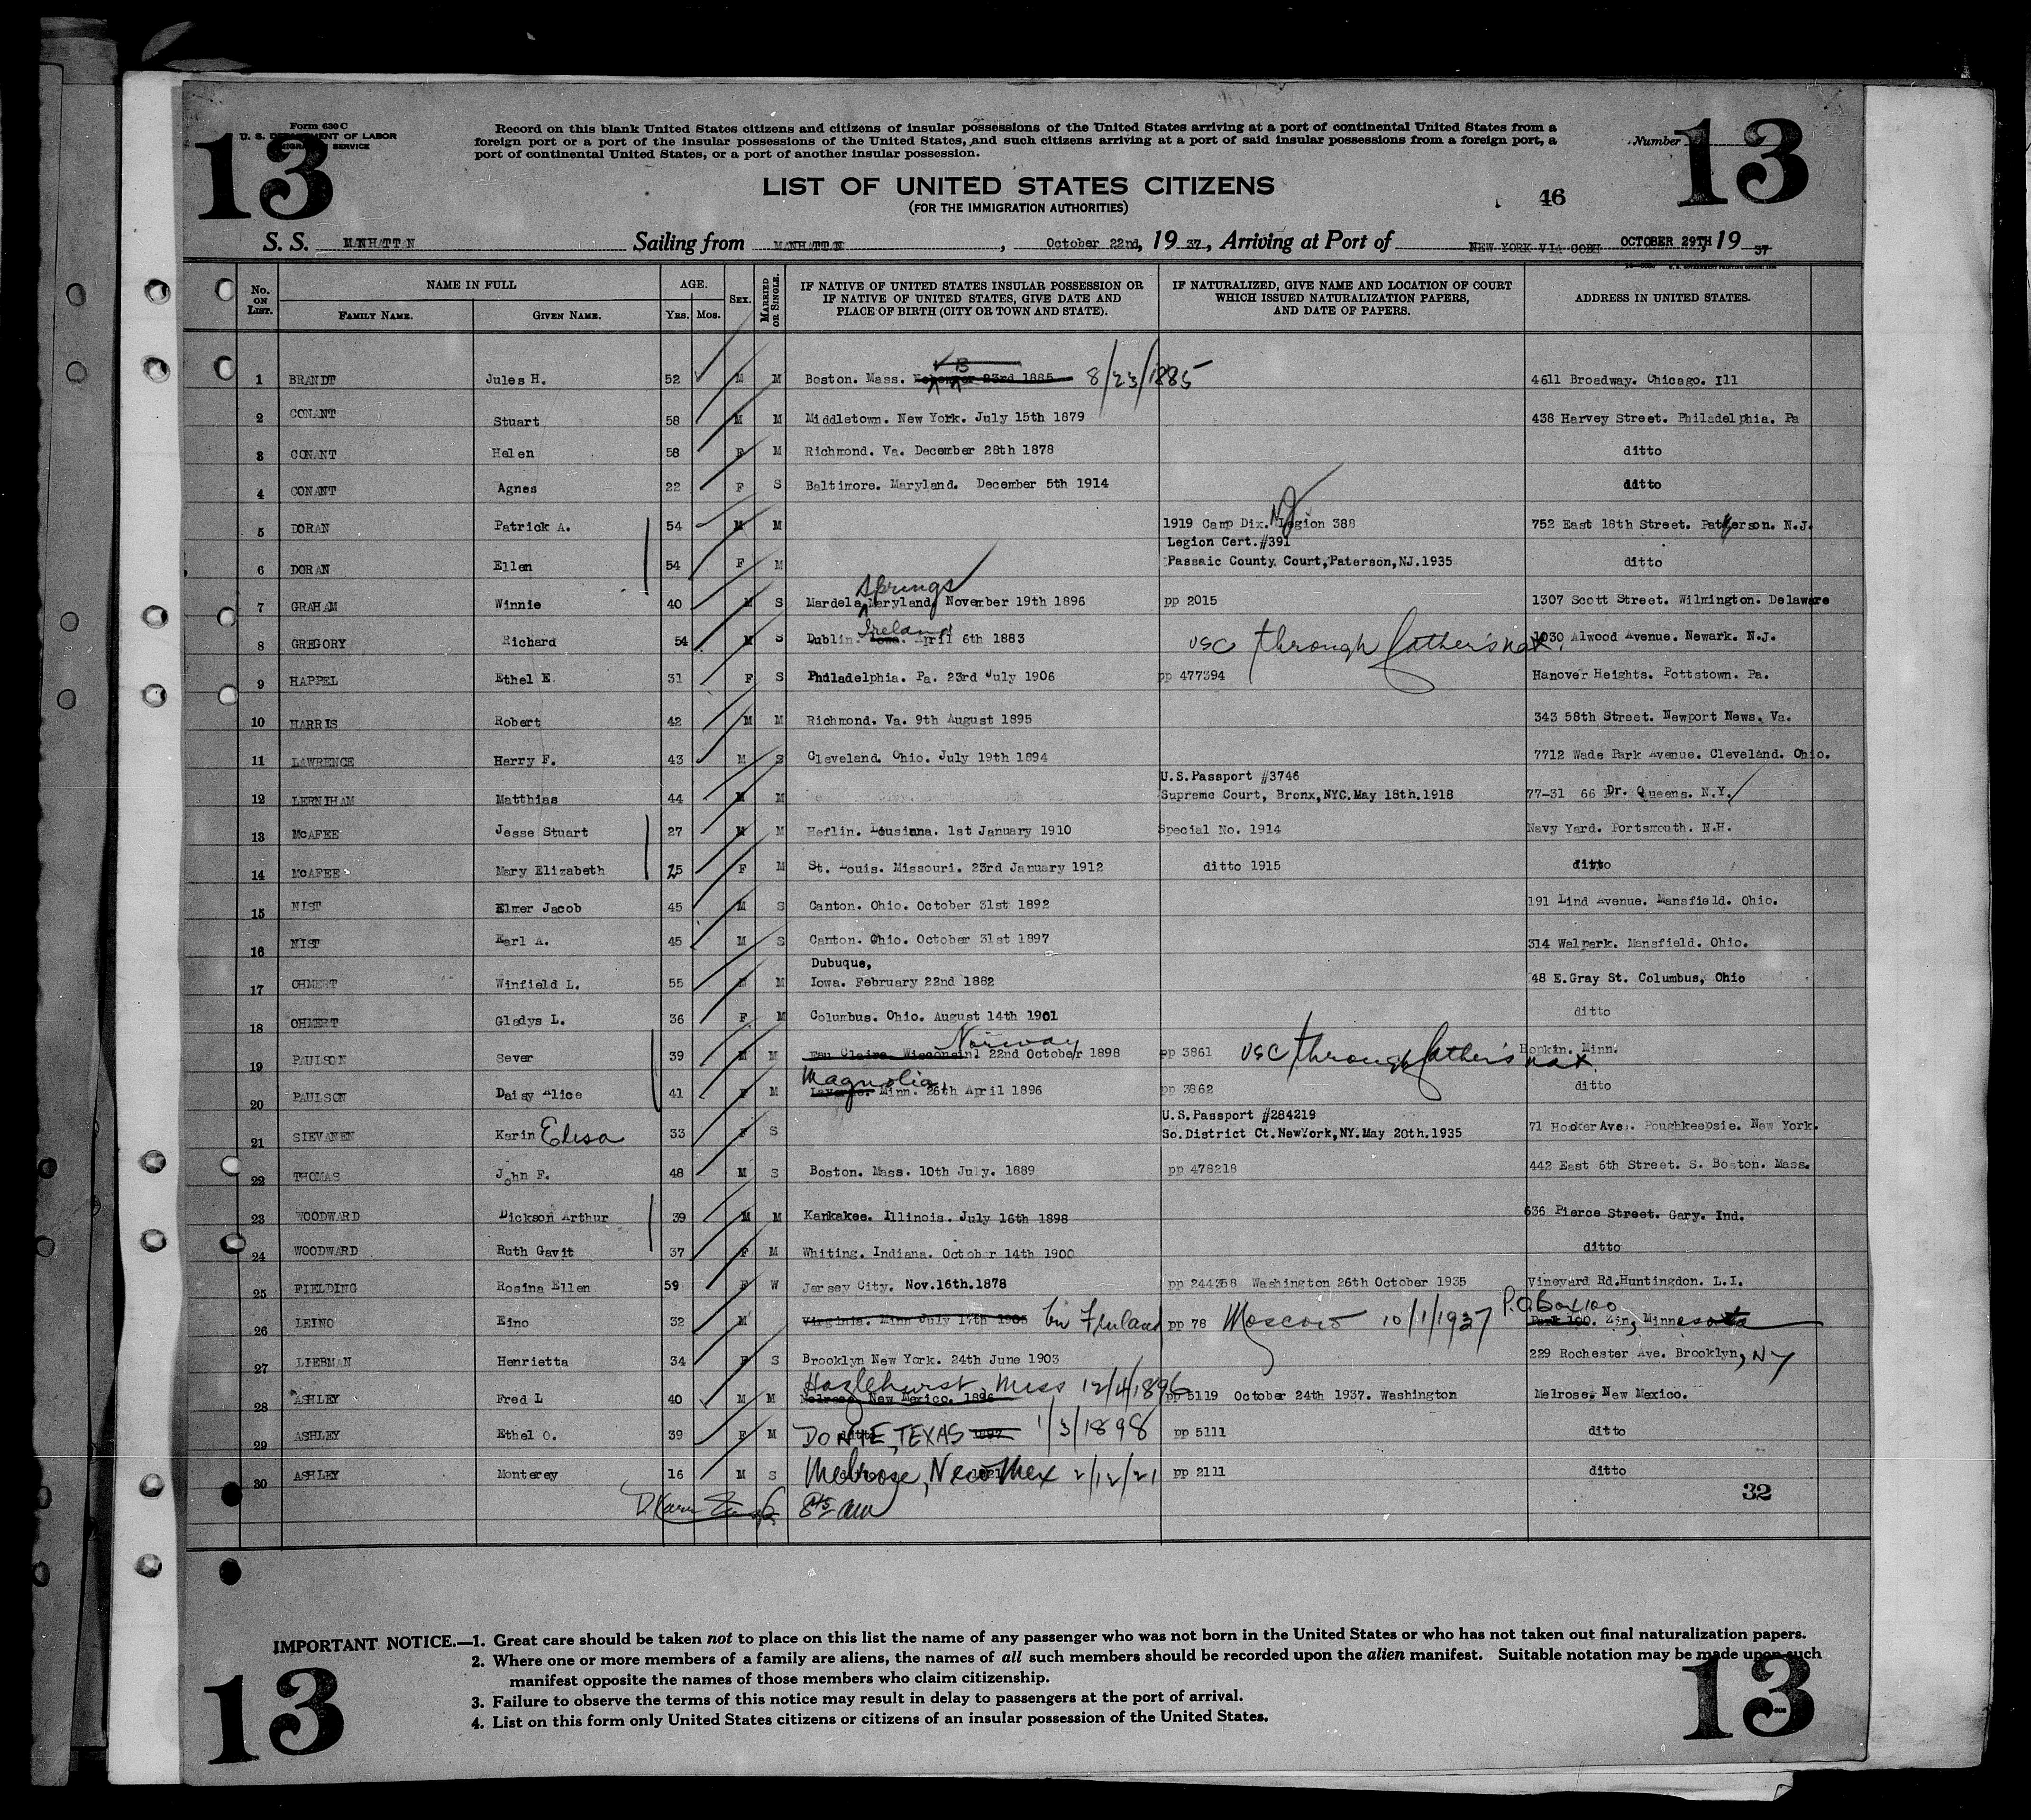 Form 630 C
U. S. DEPARTMENT OF LABOR
IMMIGRATION SERVICE
13
Record on this blank United States citizens and citizens of insular possessions of the United States arriving at a port of continental United States from a
foreign port or a port of the insular possessions of the United States, and such citizens arriving at a port of said insular possessions from a foreign port, a
port of continental United States, or a port of another insular possession.
Number
13
LIST OF UNITED STATES CITIZENS
(FOR THE IMMIGRATION AUTHORITIES)
46
S. S. MANHATTAN Sailing from MANHATTAN, October 22nd, 1937, Arriving at Port of NEW YORK VIA COBH OCTOBER 29TH, 1937
No. ON LIST. NAME IN FULL FAMILY NAME. GIVEN NAME. AGE. Yrs. Mos. SEX. MARRIED OR SINGLE. IF NATIVE OF UNITED STATES INSULAR POSSESSION OR IF NATIVE OF UNITED STATES, GIVE DATE AND PLACE OF BIRTH (CITY OR TOWN AND STATE). IF NATURALIZED, GIVE NAME AND LOCATION OF COURT WHICH ISSUED NATURALIZATION PAPERS, AND DATE OF PAPERS. ADDRESS IN UNITED STATES.
1 BRANDT Jules H. 52 M M Boston. Mass. 23rd 1885 8/23/1885 4611 Broadway. Chicago. Ill
2 CONANT Stuart 58 M M Middletown. New York. July 15th 1879 438 Harvey Street. Philadelphia. Pa
3 CONANT Helen 58 F M Richmond. Va. December 28th 1878 ditto
4 CONANT Agnes 22 F S Baltimore. Maryland. December 5th 1914 ditto
5 DORAN Patrick A. 54 M M 1919 Camp Dix. NJ Legion 388 752 East 18th Street. Patterson. N.J.
Legion Cert.#391
6 DORAN Ellen 54 F M Passaic County Court,Paterson,NJ.1935 ditto
7 GRAHAM Winnie 40 M S Mardela Springs Maryland, November 19th 1896 pp 2015 1307 Scott Street. Wilmington. Delaware
8 GREGORY Richard 54 M S Dublin. Iowa. Ireland April 6th 1883 USC through father's nat. 1030 Alwood Avenue. Newark. N.J.
9 HAPPEL Ethel E. 31 F S Philadelphia. Pa. 23rd July 1906 pp 477394 Hanover Heights. Pottstown. Pa.
10 HARRIS Robert 42 M M Richmond. Va. 9th August 1895 343 58th Street. Newport News. Va.
11 LAWRENCE Harry F. 43 M S Cleveland. Ohio. July 19th 1894 7712 Wade Park Avenue. Cleveland. Ohio.
U.S.Passport #3746
12 LERNIHAM Matthias 44 M M Supreme Court, Bronx,NYC.May 18th.1918 77-31 66 Dr. Queens. N.Y.
13 McAFEE Jesse Stuart 27 M M Heflin. Lousiana. 1st January 1910 Special No. 1914 Navy Yard. Portsmouth. N.H.
14 McAFEE Mary Elizabeth 25 F M St. Louis. Missouri. 23rd January 1912 ditto 1915 ditto
15 NIST Elmer Jacob 45 M S Canton. Ohio. October 31st 1892 191 Lind Avenue. Mansfield. Ohio.
16 NIST Earl A. 45 M S Canton. Ohio. October 31st 1897 314 Walpark. Mansfield. Ohio.
Dubuque,
17 OHMERT Winfield L. 55 M M Iowa. February 22nd 1882 48 E.Gray St. Columbus, Ohio
18 OHMERT Gladys L. 36 F M Columbus. Ohio. August 14th 1901 ditto
19 PAULSON Sever 39 M M Eau Claire Wisconsin Norway 22nd October 1898 pp 3861 USC through father's nat. Hopkin. Minn.
20 PAULSON Daisy Alice 41 F M Magnolia, Minn. 26th April 1896 pp 3862 ditto
U.S.Passport #284219
21 SIEVANEN Karin Elisa 33 F S So.District Ct.NewYork,NY.May 20th.1935 71 Hooker Ave. Poughkeepsie. New York.
22 THOMAS John F. 48 M S Boston. Mass. 10th July. 1889 pp 478218 442 East 6th Street. S. Boston. Mass.
23 WOODWARD Dickson Arthur 39 M M Kankakee. Illinois. July 16th 1898 636 Pierce Street. Gary. Ind.
24 WOODWARD Ruth Gavit 37 F M Whiting. Indiana. October 14th 1900 ditto
25 FIELDING Rosina Ellen 59 F W Jersey City. Nov.16th.1878 pp 244358 Washington 26th October 1935 Vineyard Rd.Huntingdon. L.I.
26 LEINO Eino 32 M Virginia. Minn July 17th 1905 in Finland pp 78 Moscow 10/1/1937 P.O. Box 100 Park 100. Zin, Minnesota
27 LIEBMAN Henrietta 34 F S Brooklyn New York. 24th June 1903 229 Rochester Ave. Brooklyn, NY
28 ASHLEY Fred L 40 M M Melrose. New Mexico. 1896 Hazlehurst, Miss 12/4/1896 pp 5119 October 24th 1937. Washington Melrose. New Mexico.
29 ASHLEY Ethel O. 39 F M DONIE, TEXAS 1897 1/3/1898 pp 5111 ditto
30 ASHLEY Monterey 16 M S Melrose, New Mex 2/12/21 pp 2111 ditto
8 45 am
32
IMPORTANT NOTICE.—1. Great care should be taken not to place on this list the name of any passenger who was not born in the United States or who has not taken out final naturalization papers.
2. Where one or more members of a family are aliens, the names of all such members should be recorded upon the alien manifest. Suitable notation may be made upon such
manifest opposite the names of those members who claim citizenship.
3. Failure to observe the terms of this notice may result in delay to passengers at the port of arrival.
4. List on this form only United States citizens or citizens of an insular possession of the United States.
13
13